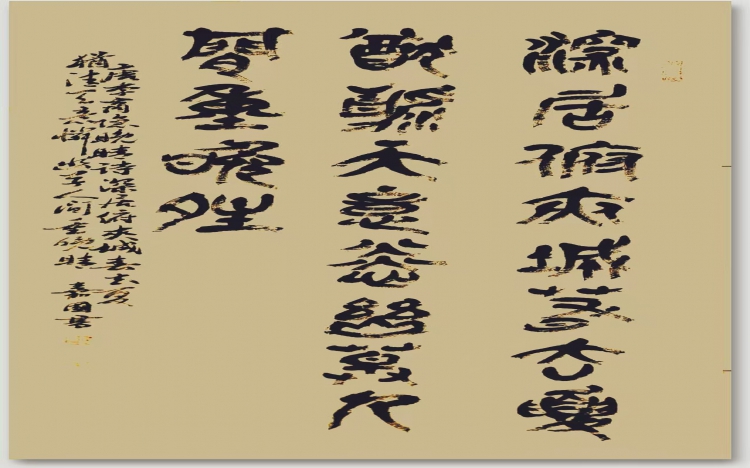 深居俯夾城春去夏
猶清天意憐幽草人
間重晚晴
唐李商隐晚晴诗深居俯夾城春去夏
猶清天意憐幽草人间重晚晴 嘉國書